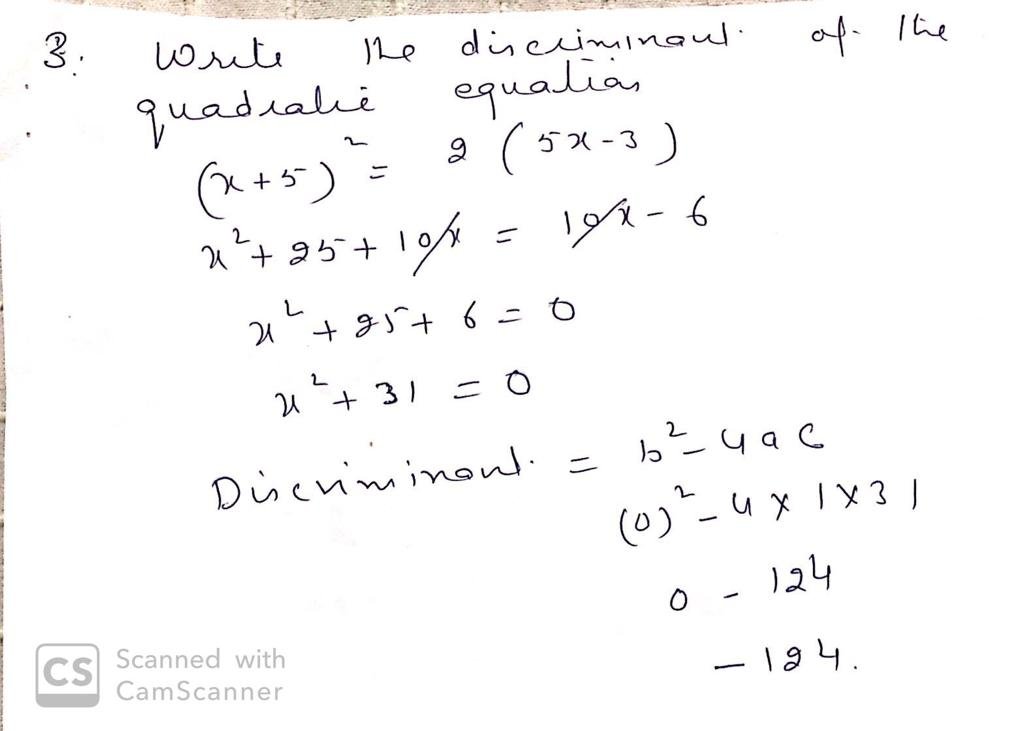 3. Write the discriminant of the
quadratic equation
(x+5)² = 2 (5x-3)
x² + 25 + 10x = 10x - 6
x² + 25 + 6 = 0
x² + 31 = 0
Discriminant = b² - 4ac
(0)² - 4 x 1 x 31
0 - 124
- 124.
CS Scanned with
CamScanner